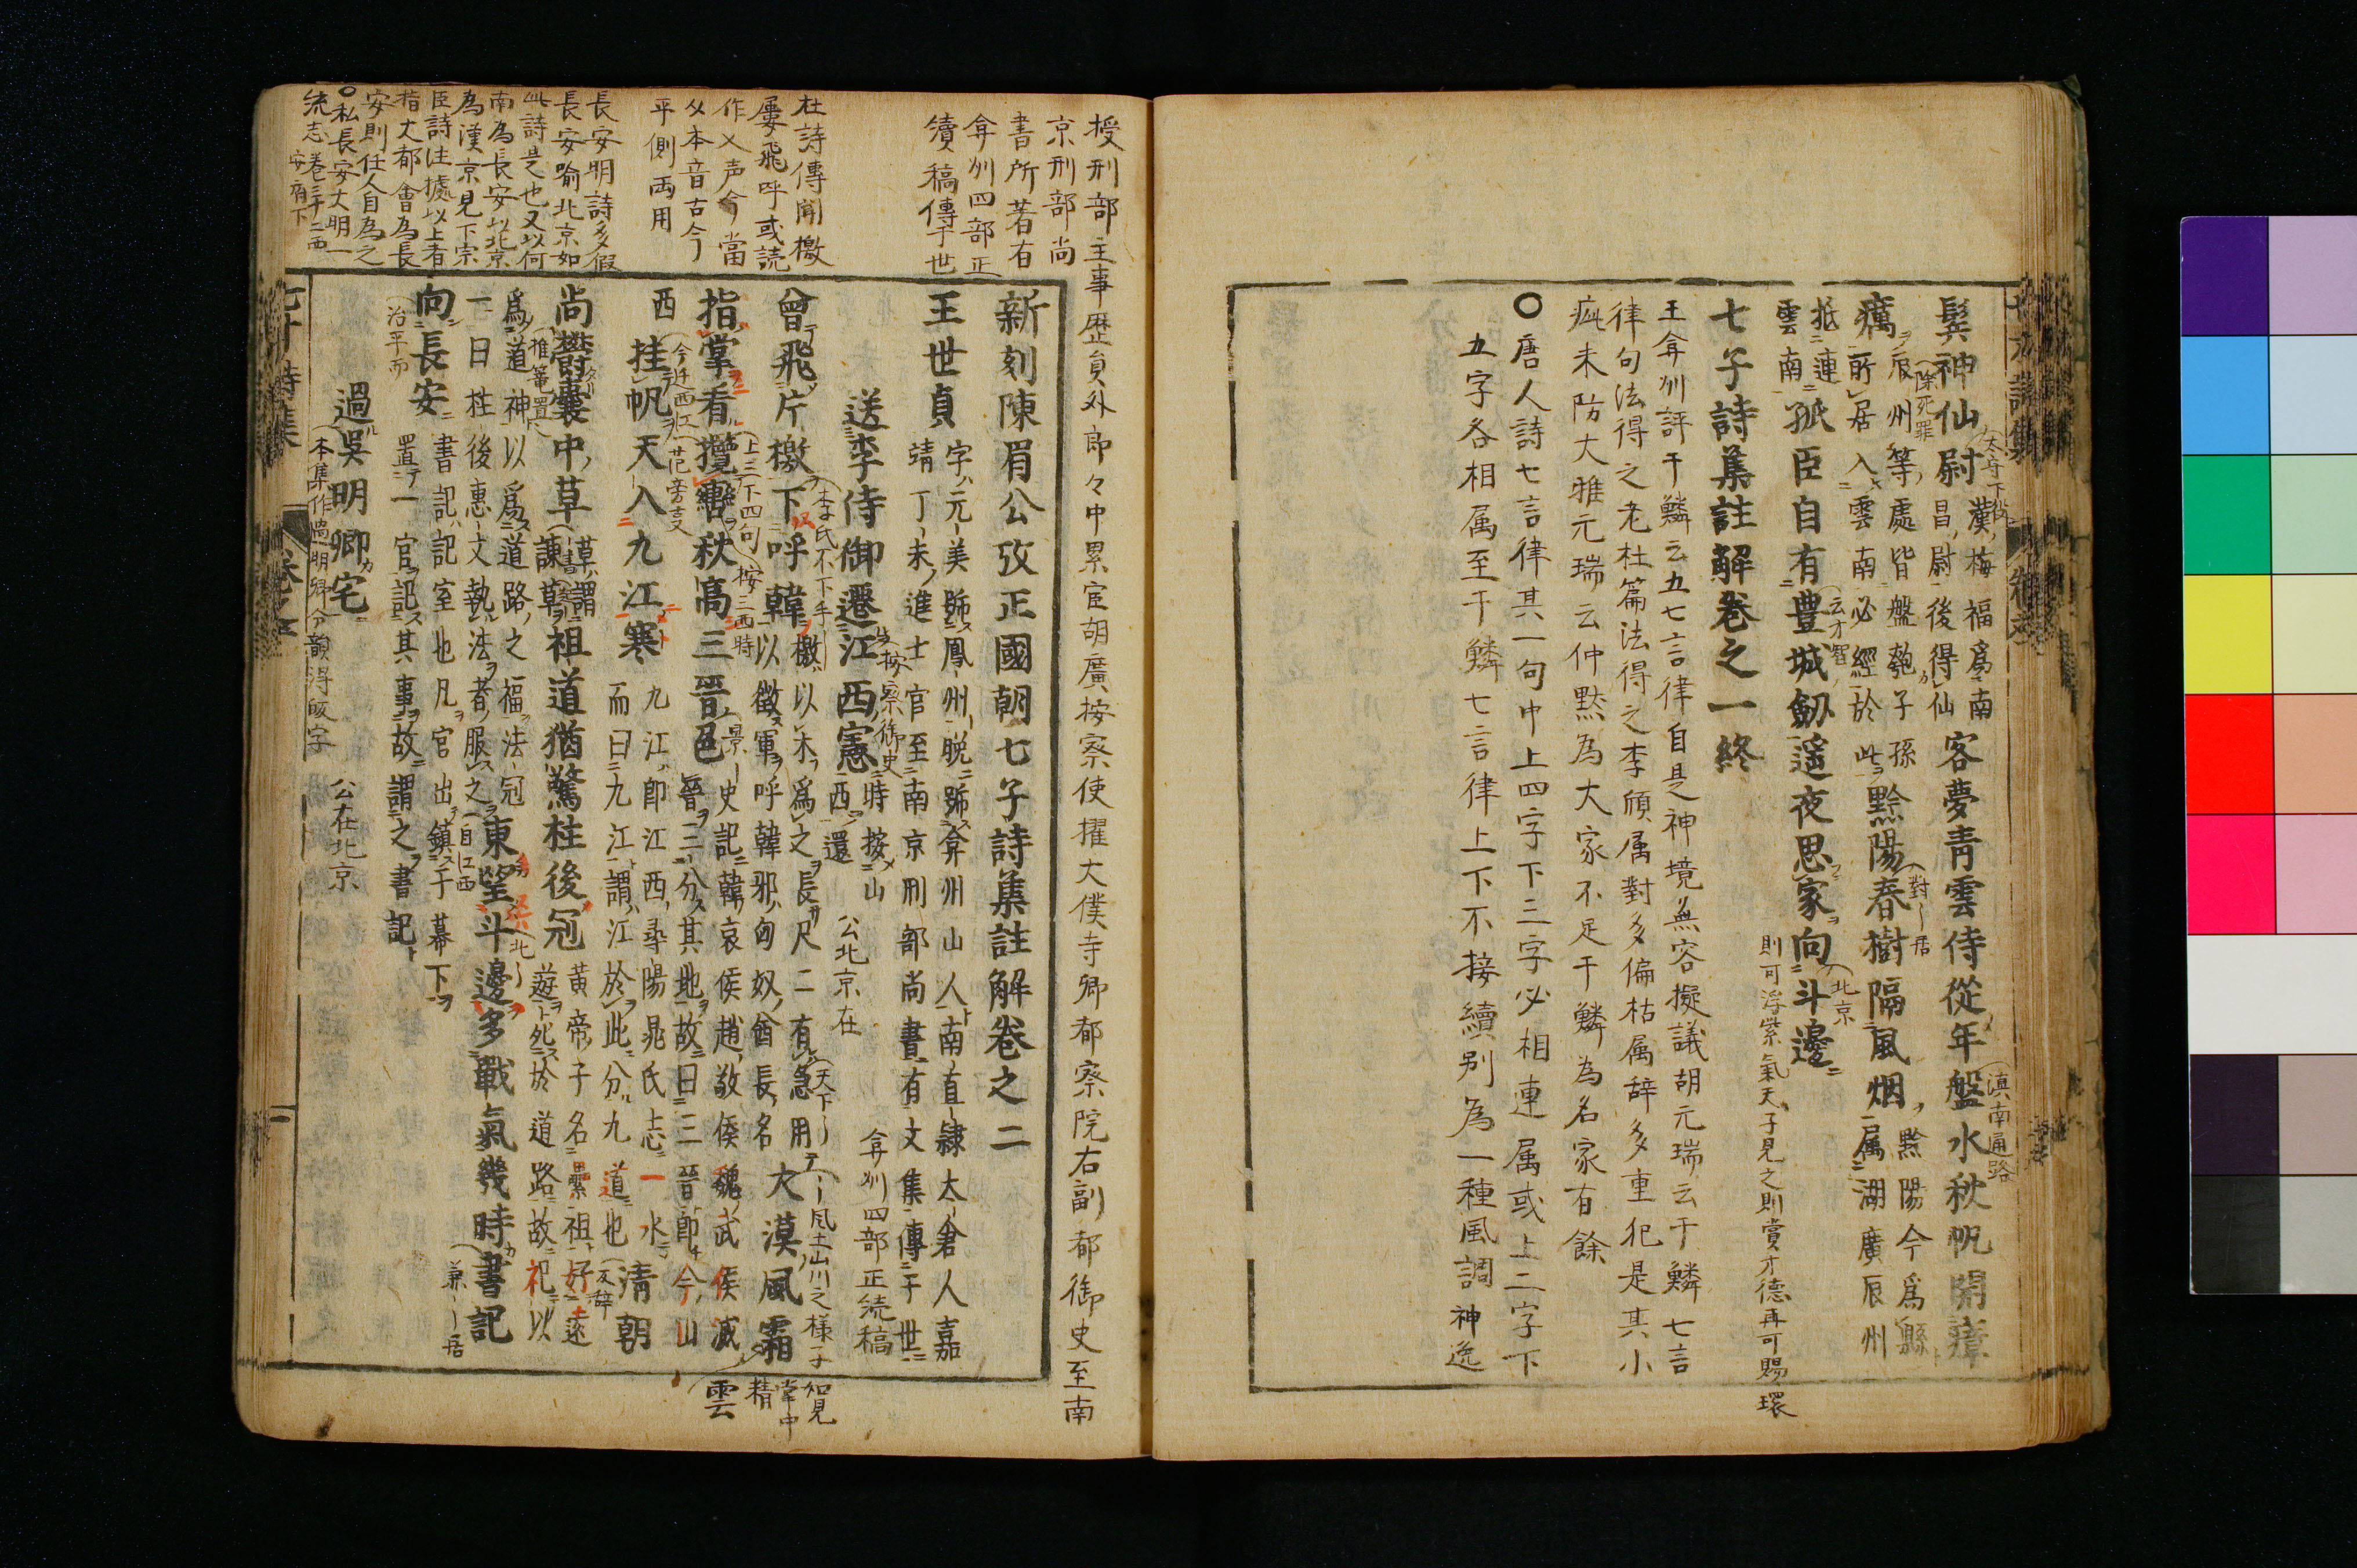 鬂神仙尉漢梅福爲南
昌尉後得仙
客夢青雲侍從年盤水秋帆開瘴
癘辰州等處皆盤匏子孫
所居入雲南必經於此
黔陽春樹隔風烟黔陽今爲縣
属湖廣辰州
抵連
雲南
孤臣自有豊城劔遥夜思家向斗邊
則可浮紫氣天子見之則賞才德再可賜環
滇南通路
除死罪
對〡居
北京
七子詩集註解卷之一終
王弇州評于鱗云五七言律自是神境無容擬議胡元瑞云于鱗七言
律句法得之老杜篇法得之李頎属對多偏枯属辞多重犯是其小
疵未防大雅元瑞云仲黙為大家不足于鱗為名家有餘
〇唐人詩七言律其一句中上四字下三字必相連属或上二字下
五字各相属至于鱗七言律上下不接續别為一種風調神逸
授刑部主事歴員外郎々中累官胡廣按察使擢大僕寺卿都察院右副都御史至南
京刑部尚
書所著有
弇州四部正
續稿傳于世
新刻陳眉公攷正國朝七子詩集註解卷之二
王世貞字元美號鳳州晩號弇州山人南直隷太倉人嘉
靖丁未進士官至南京刑部尚書有文集傳于世
弇州四部正続稿
送李侍御遷江西憲時按山
西還
公北京在
杜詩傳聞檄
屢飛呼或読
作乂声今當
从本音古今
平側両用
曾飛片檄下呼韓檄以木爲之長尺二有急用
以徴軍呼韓邪匈奴酋長名
大漠風霜
指掌看攬轡秋高三晉邑史記韓哀侯趙敬侯魏武侯滅
晉三分其地故曰三晉即今山
西
雲
挂帆天入九江寒九江即江西尋陽晁氏志一水
而曰九江謂江於此分九道也
清朝
長安明詩多假
長安喻北京如
此詩是也又以何
南為長安以北京
為漢京見下宗
臣詩注據以上者
指大都會為長
安則任人自為之
〇私長安大明一
統志卷三十二西
安府下
尚欝嚢中草草謂
諫草
祖道猶驚柱後冠黄帝子名纍祖好遠
遊死於道路故祀以
爲道神以爲道路之福法冠
一曰柱後惠文執法者服之
東望斗邊多戰氣幾時書記
向長安書記記室也凡官出鎮于幕下
置一官記其事故謂之書記
過吳明卿宅
公在北京